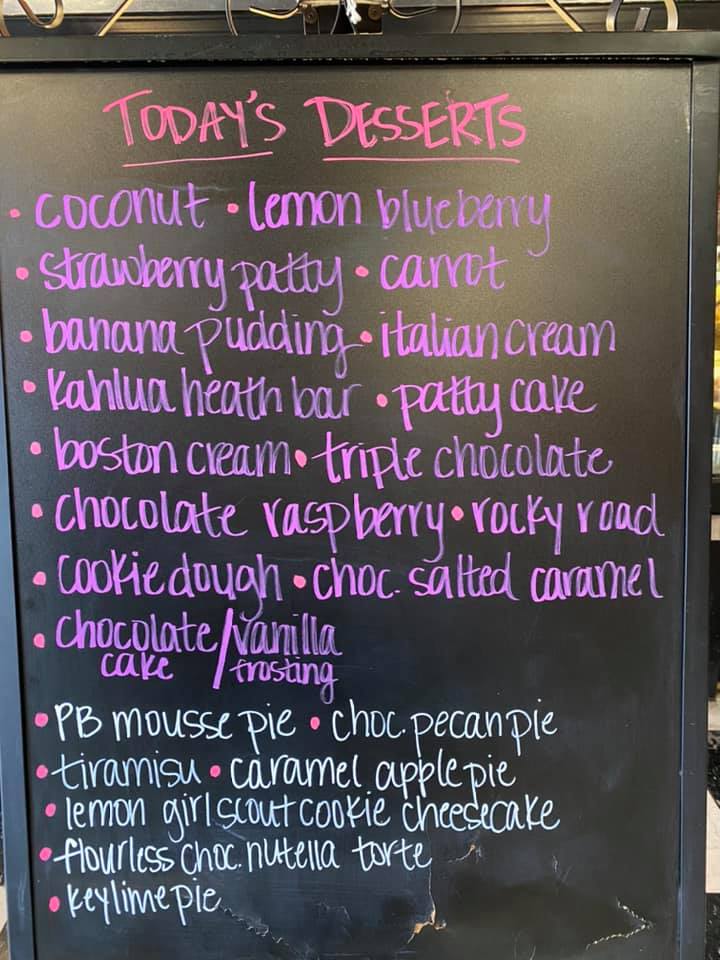 TODAY'S DESSERTS
• coconut • lemon blueberry
• strawberry patty • carrot
• banana pudding • italian cream
• Kahlua heath bar • patty cake
• boston cream • triple chocolate
• chocolate raspberry • rocky road
• cookie dough • choc. salted caramel
• chocolate/vanilla
cake / frosting
• PB mousse pie • choc. pecan pie
• tiramisu • caramel apple pie
• lemon girl scout cookie cheesecake
• flourless choc. nutella torte
• key lime pie